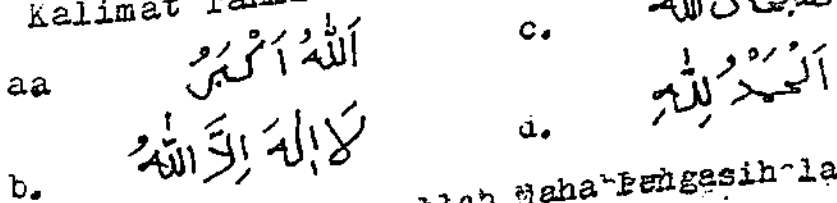 Kalimat
aa اَللّٰهُ اَكْبَرُ
c.
b. لَا إِلٰهَ إِلَّا اللّٰهُ
d. اَلْحَمْدُ لِلّٰهِ
Maha Pengasih la